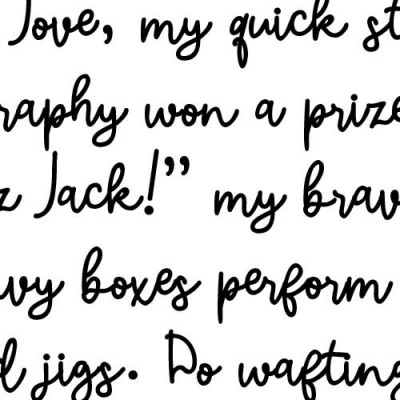 Jove, my quick st
raphy won a prize
z Jack!” my brav
vy boxes perform
d jigs. Do wafting